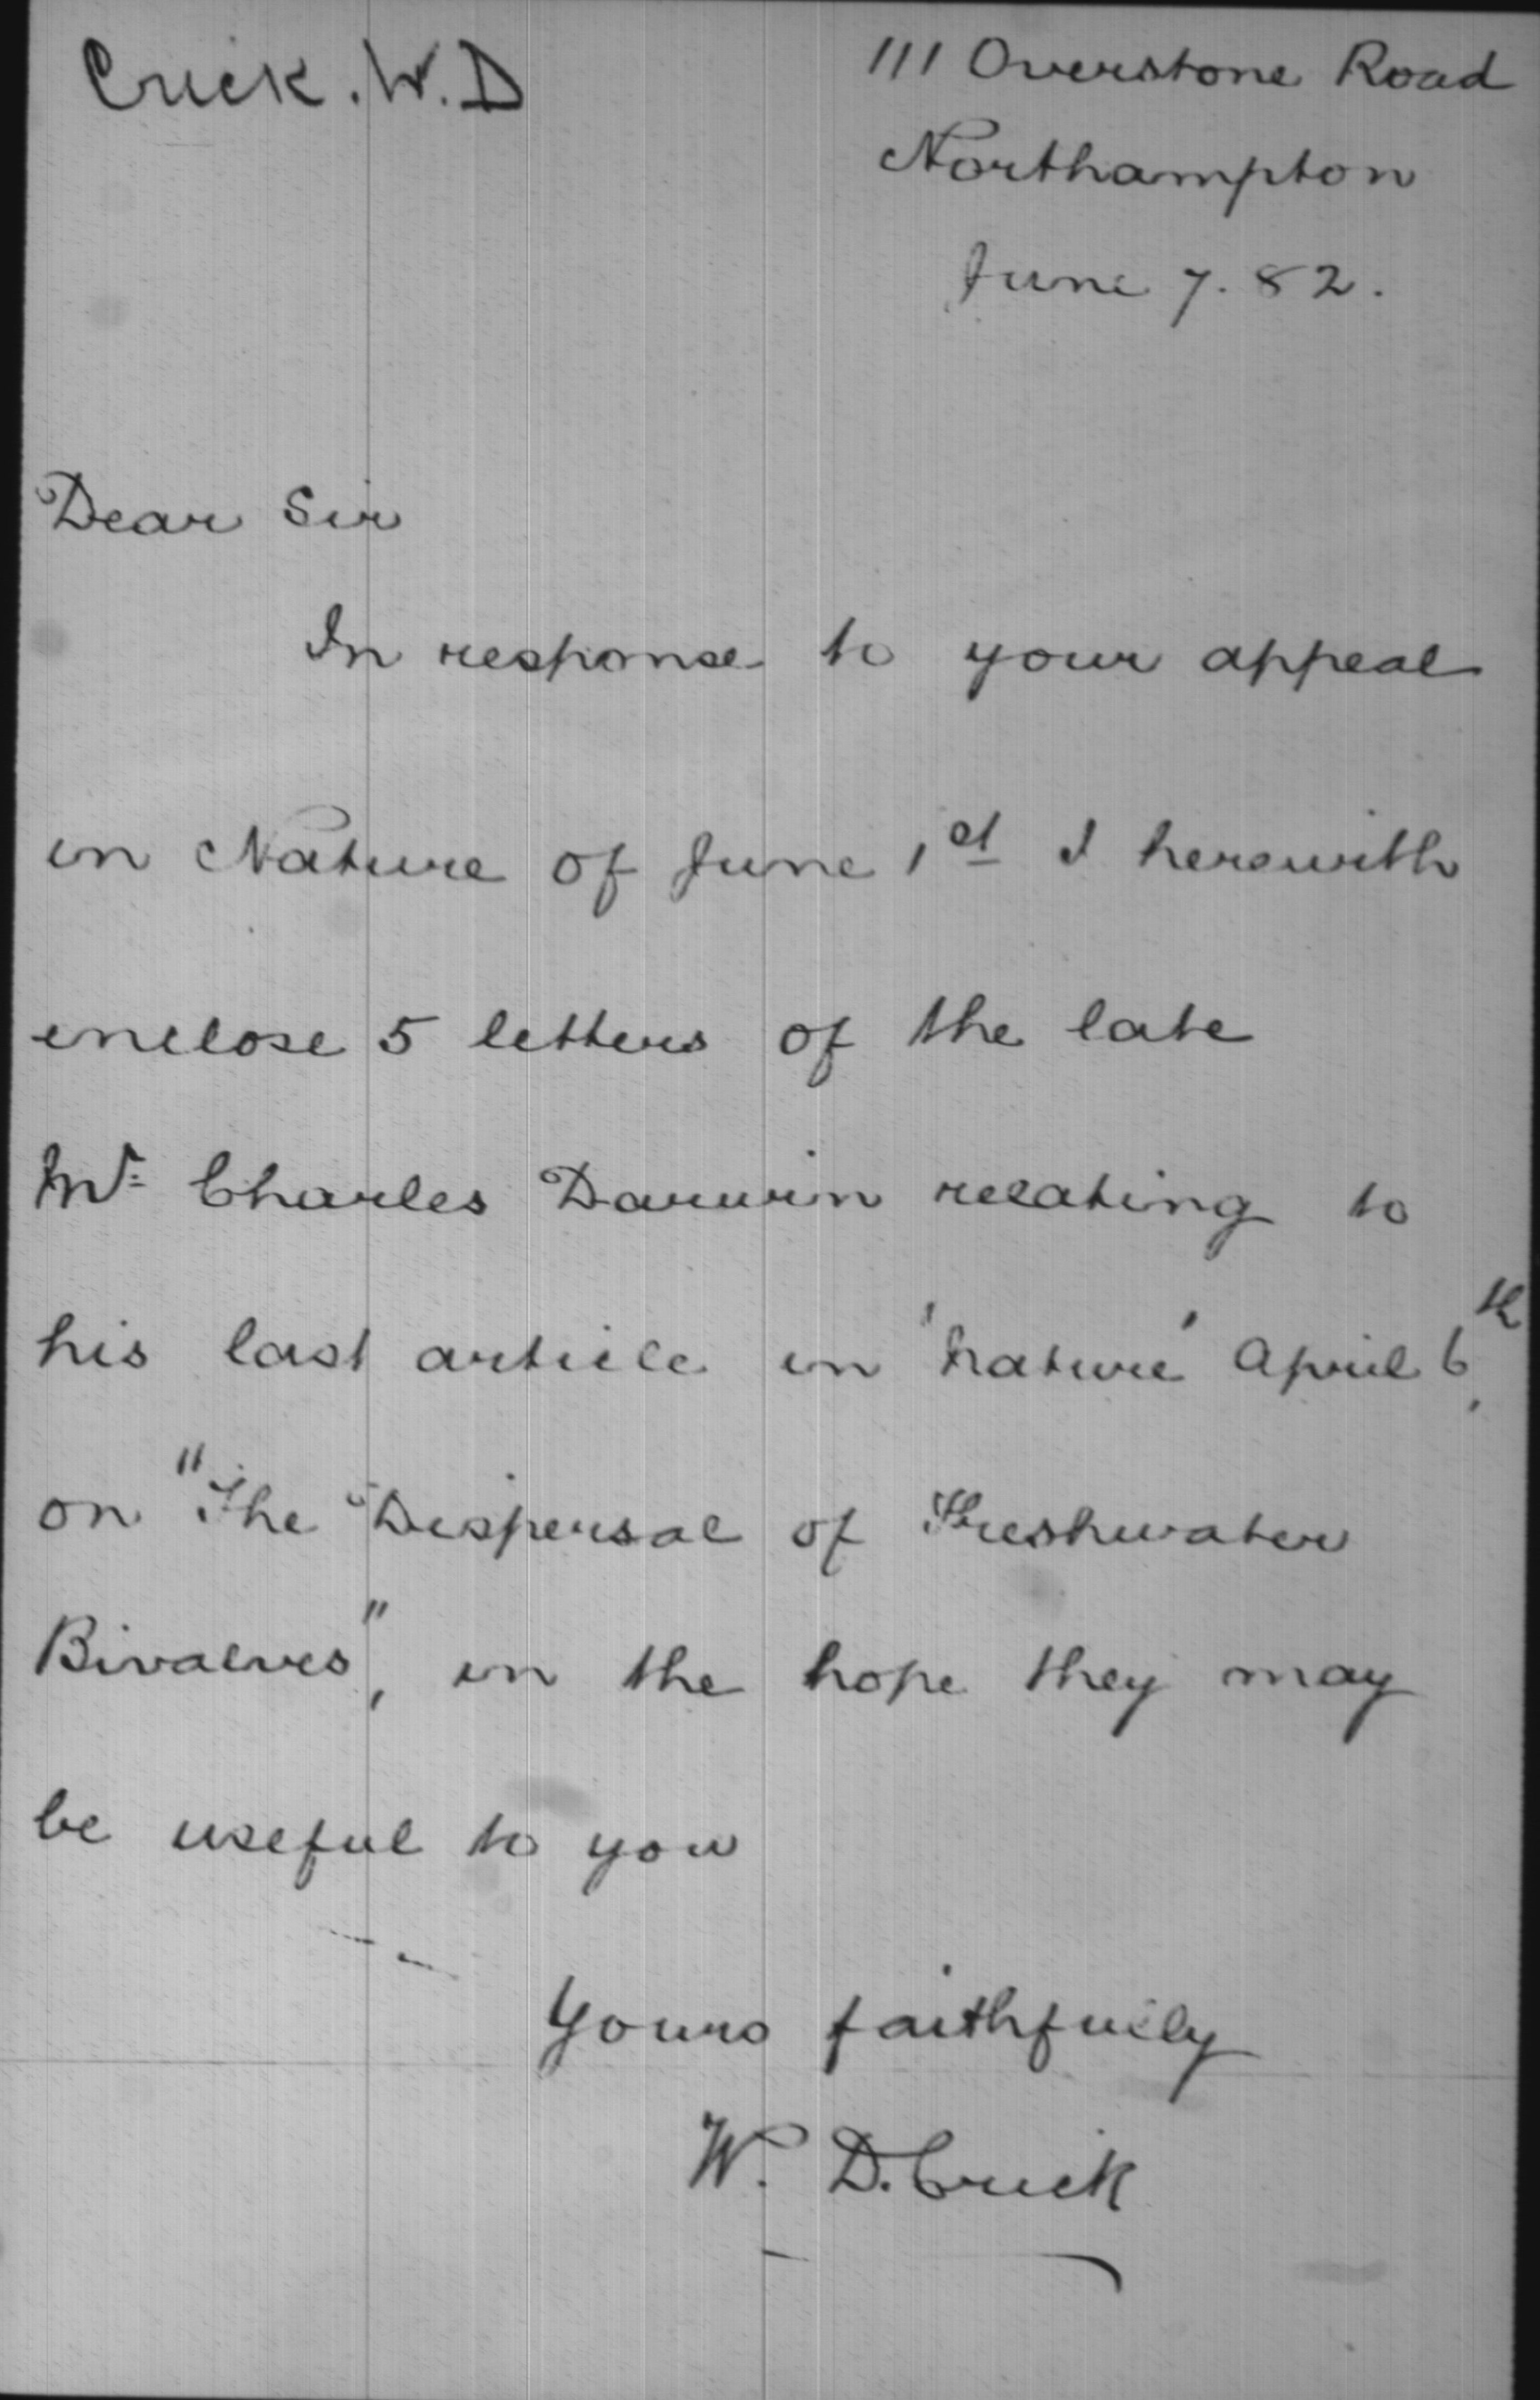 Crick. W. D
111 Overstone Road
Northampton
June 7. 82.
Dear Sir
In response to your appeal
in Nature of June 1st I herewith
enclose 5 letters of the late
Mr. Charles Darwin relating to
his last article in 'Nature' April 6th,
on "The Dispersal of Freshwater
Bivalves", in the hope they may
be useful to you
Yours faithfully
W. D. Crick